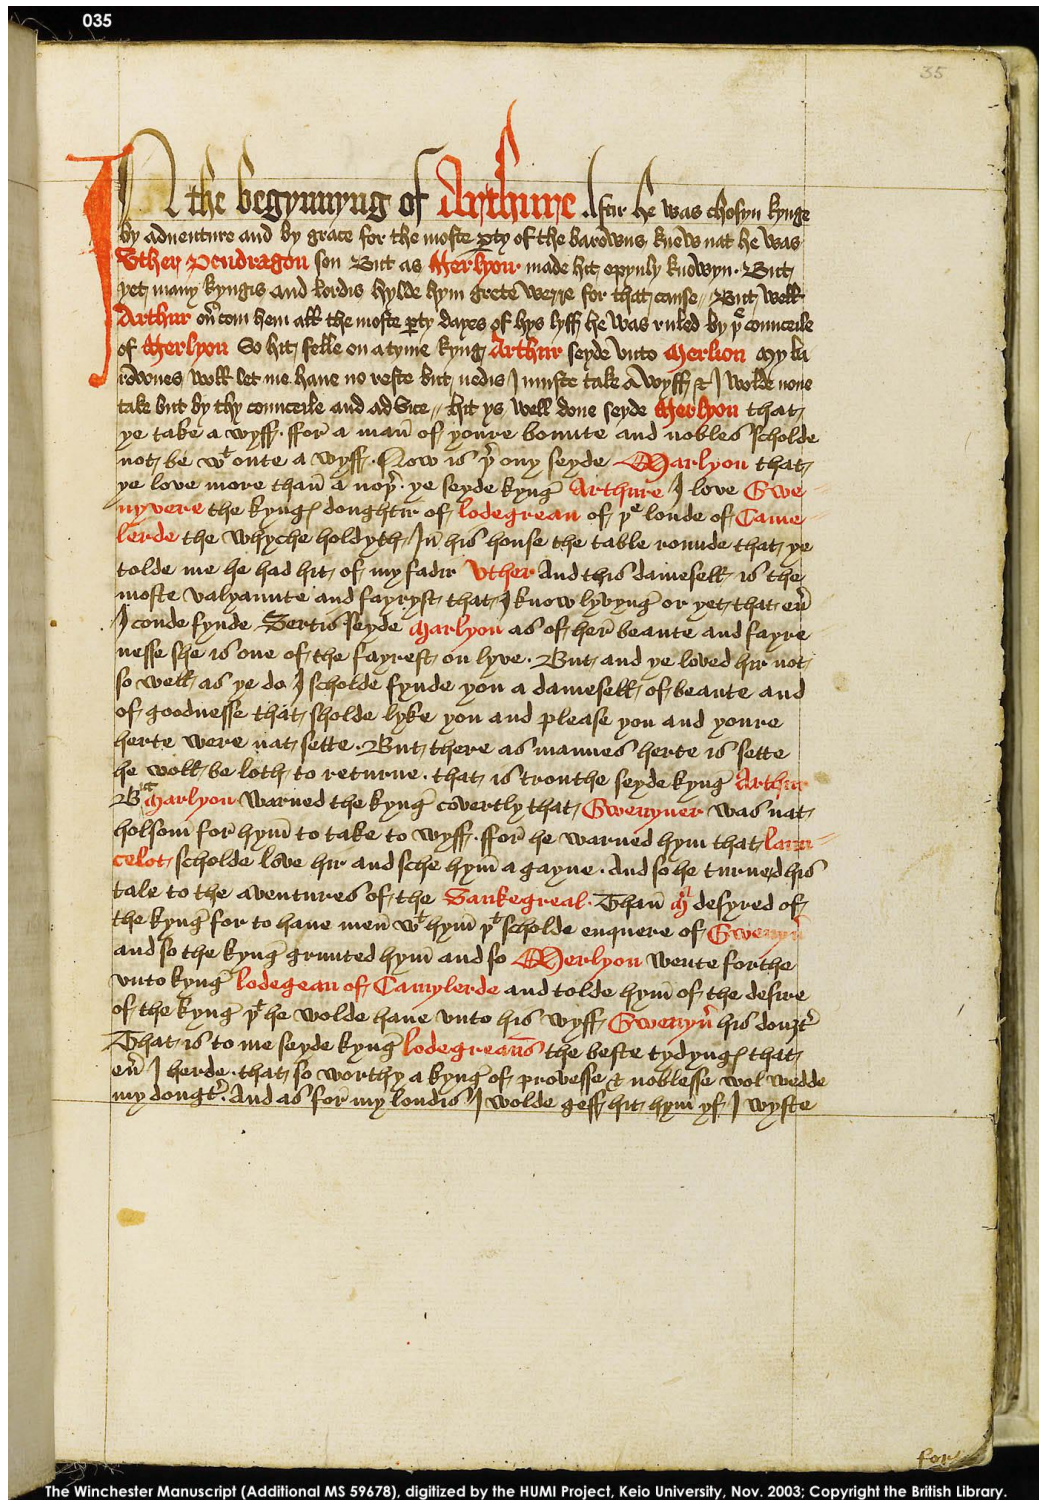 035
35
IN the begynnyng of Arthure Aftir he was chosyn kynge
by aduenture and by grace for the moste pty of the barowns knew nat he was
Vther Pendragon son But as Merlyon made hit opynly knowyn. But
yet many kyngis and lordis hylde hym grete werre for that cause, But well
Arthur ou̅com hem all the moste pty dayes of hys lyff he was ruled by þe counceile
of Merlyon So hit felle on a tyme kyng Arthur seyde vnto Merlion My ba
rownes woll let me haue no reste but nedis I muste take a wyff & I wolde none
take but by thy counceile and advice, hit ys well done seyde Merlyon that
ye take a wyff. ffor a man̅ of youre bounte and nobles scholde
not be wt oute a wyff. Now is þ̅ ony seyde Marlyon that
ye love more than̅ a noþ̅. ye seyde kyng Arthure I love Gwe
nyvere the kyngꝭ doughtir of lodegrean of þe londe of Came
lerde the whyche holdyth In̅ his house the table rounde that ye
tolde me he had hit of my fadir Vther And this damesell is the
moste valyaunte and fayryst that I know lyvyng or yet that eu̅
I coude fynde Sertis seyde Marlyon as of her beaute and fayre
nesse she is one of the fayrest on lyve. But and ye loved hir not
so well as ye do I scholde fynde you a damesell of beaute and
of goodnesse that sholde lyke you and please you and youre
herte were nat sette. But there as mannes herte is sette
he woll be loth to returne. that is trouthe seyde kyng Arthur
But Marlyon warned the kyng covertly that Gwenyuer was nat
holsom̅ for hym̅ to take to wyff. ffor he warned hym that laun
celot scholde love hir and sche hym̅ a gayne. And so he turned his
tale to the aventures of the Sankegreal. Than̅ M̅ desyred of
the kyng for to haue men̅ wt hym̅ þt scholde enquere of Gwenyu̅
and so the kyng graunted hym̅ and so Merlyon wente forthe
vnto kyng lodegean of Camylerde and tolde hym̅ of the desire
of the kyng þt he wolde haue vnto his wyff Gwenyu̅ his douȝt̅
That is to me seyde kyng lodegreau̅s the beste tydyngꝭ that
eu̅ I herde. that so worthy a kyng of prouesse & noblesse wol wedde
my dougt̅. And as for my londis I wolde geff hit hym̅ yf I wyste
for
The Winchester Manuscript (Additional MS 59678), digitized by the HUMI Project, Keio University, Nov. 2003; Copyright the British Library.